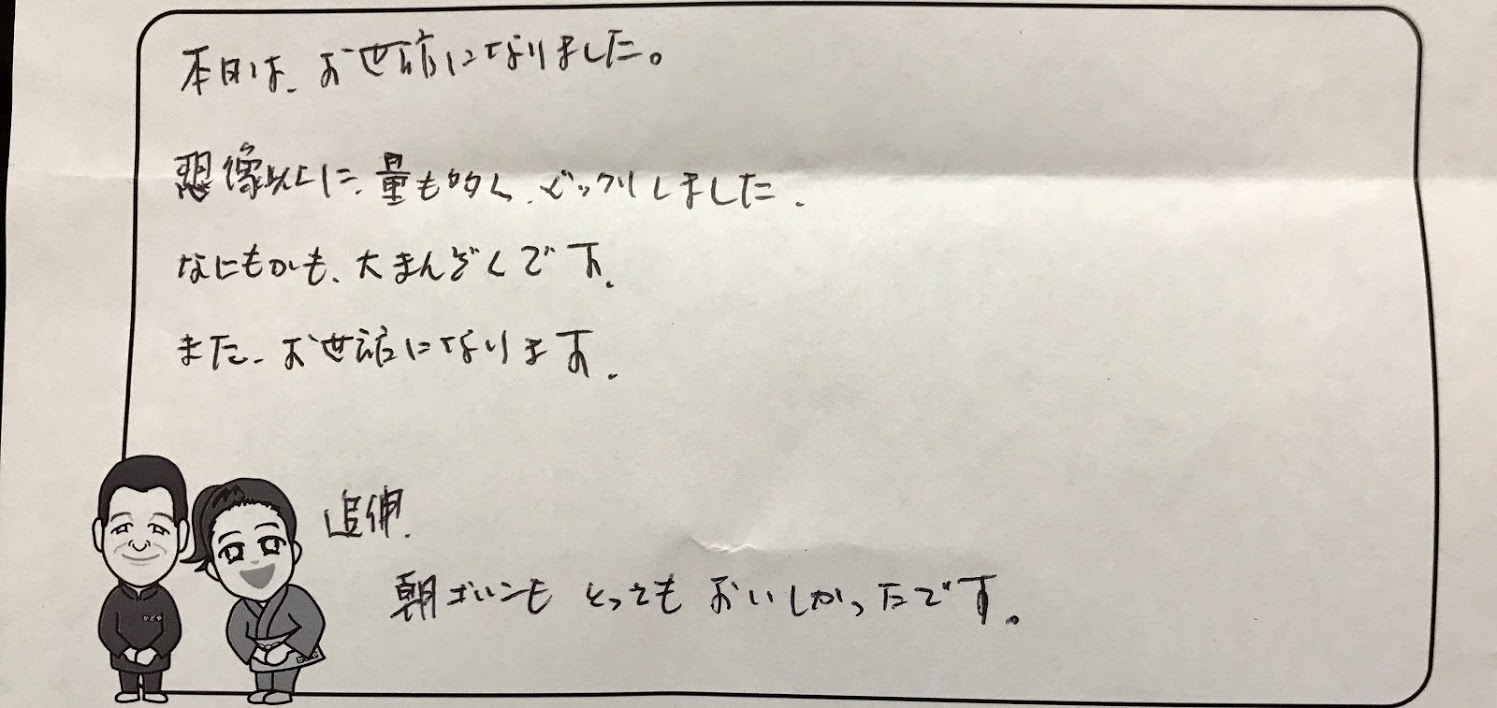 本日は、お世話になりました。
想像以上に、量も多く、ビックリしました.
なにもかも、大まんぞくです.
また、お世話になります.
追伸.
朝ごはんも とっても おいしかったです。
かどや